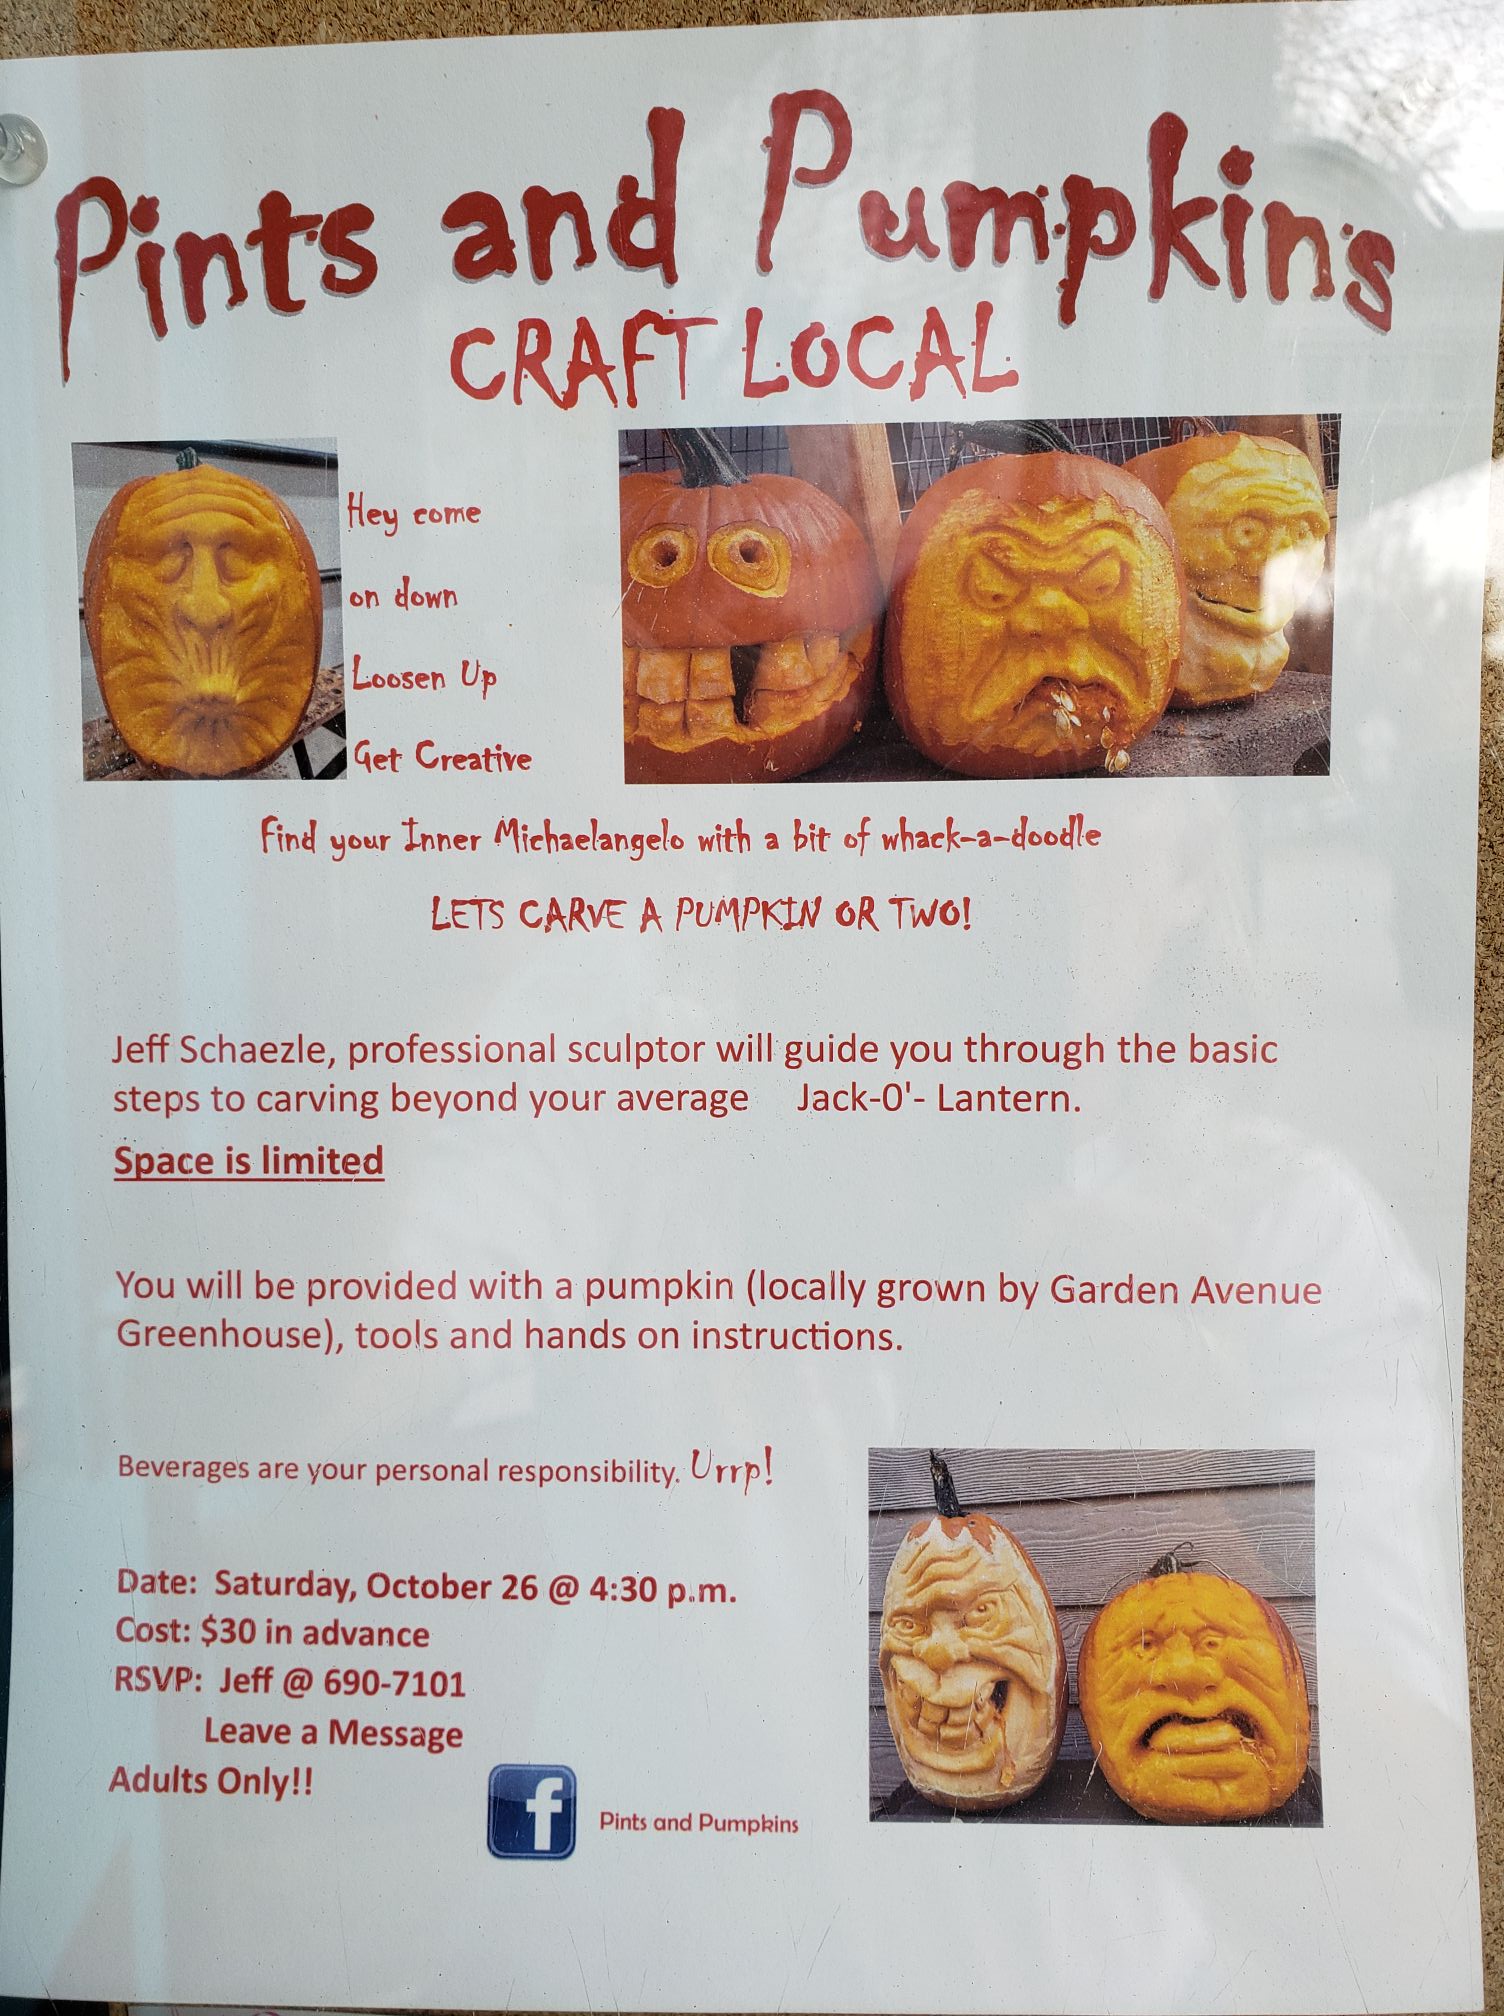 Pints and Pumpkins
CRAFT LOCAL
Hey come
on down
Loosen Up
Get Creative
Find your Inner Michaelangelo with a bit of whack-a-doodle
LETS CARVE A PUMPKIN OR TWO!
Jeff Schaezle, professional sculptor will guide you through the basic
steps to carving beyond your average Jack-O'- Lantern.
Space is limited
You will be provided with a pumpkin (locally grown by Garden Avenue
Greenhouse), tools and hands on instructions.
Beverages are your personal responsibility. Urrp!
Date: Saturday, October 26 @ 4:30 p.m.
Cost: $30 in advance
RSVP: Jeff @ 690-7101
Leave a Message
Adults Only!!
f
Pints and Pumpkins